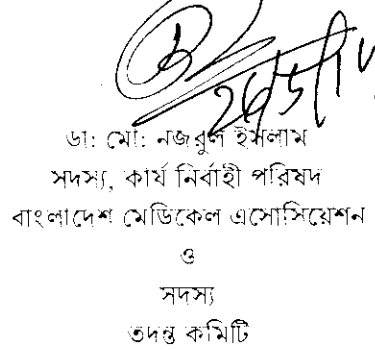 26/5/1
ডা: মো: নজরুল ইসলাম
সদস্য, কার্য নির্বাহী পরিষদ
বাংলাদেশ মেডিকেল এসোসিয়েশন
ও
সদস্য
তদন্ত কমিটি